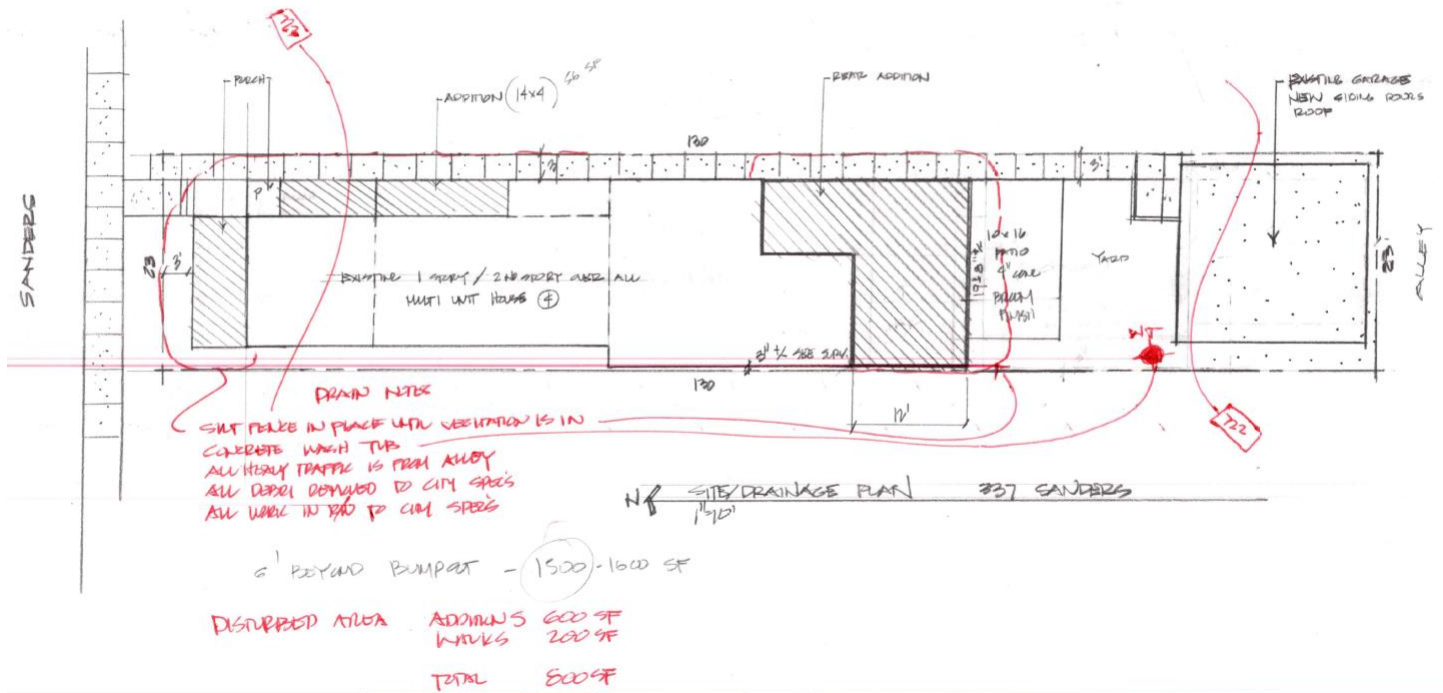 722
PORCH
ADDITION (14x4) 56 SF
REAR ADDITION
EXISTING GARAGE
NEW SIDING DOORS
ROOF
130
3'
3'
P
SANDERS
23'
3'
EXISTING 1 STORY / 2ND STORY OVER ALL
MULTI UNIT HOUSE 4
10x16
PATIO
4" CONC
BROOM
FINISH
YARD
23'
ALLEY
WT
3" +/- SEE SURV.
130
12'
DRAIN NOTES
SILT FENCE IN PLACE UNTIL VEGITATION IS IN
CONCRETE WASH TUB
ALL HEAVY TRAFFIC IS FROM ALLEY
ALL DEBRI REMOVED TO CITY SPECS
ALL WORK IN R/W TO CITY SPECS
722
N SITE/DRAINAGE PLAN 337 SANDERS
1"=10'
6' BEYOND BUMPOUT - 1500 - 1600 SF
DISTURBED AREA ADDITIONS 600 SF
WALKS 200 SF
TOTAL 800 SF